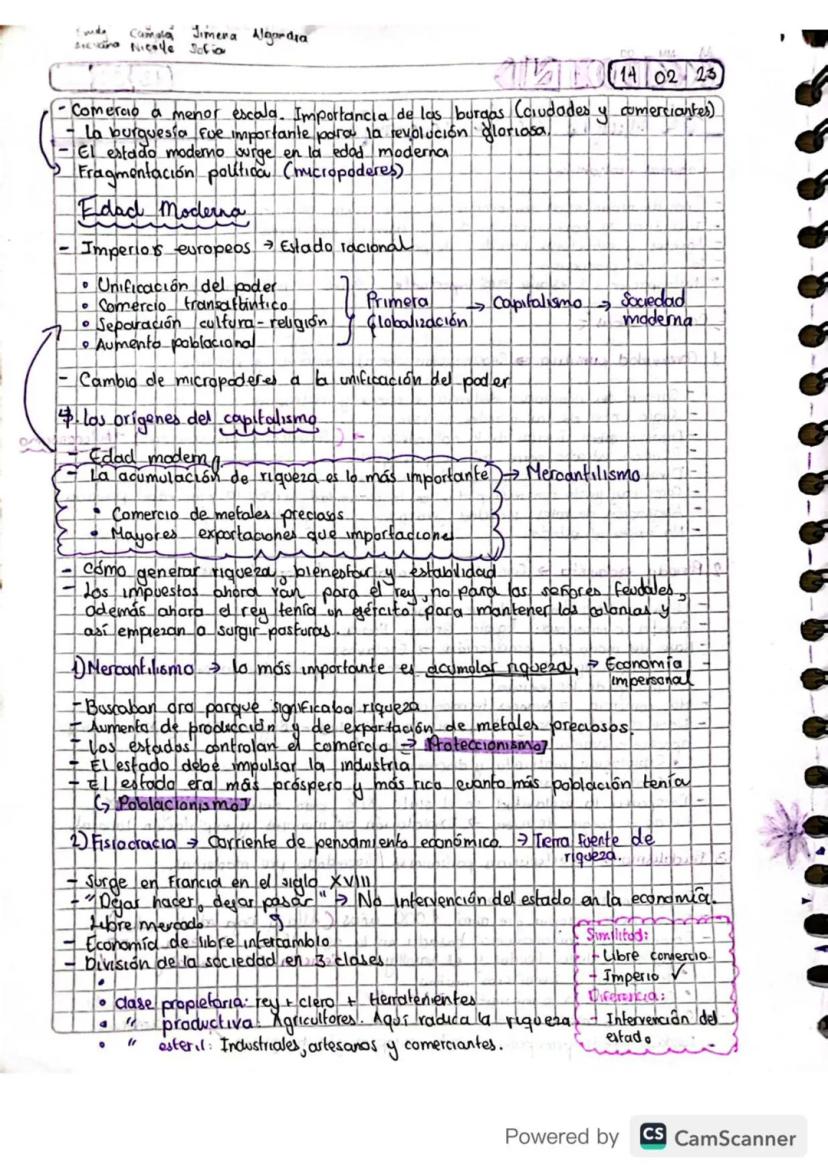 Camila Jimena Alejandra
Nicolle Sofia
14 02 23
- Comercio a menor escala. Importancia de las burgas (ciudades y comerciantes)
- La burguesía fue importante para la revolución gloriosa.
- El estado moderno surge en la edad moderna
Fragmentación política (micropoderes)
Edad Moderna
- Imperios europeos → Estado racional
• Unificación del poder
• Comercio transatlántico
• Separación cultura-religión
• Aumento poblacional
Primera Globalización → Capitalismo → Sociedad moderna
- Cambio de micropoderes a la unificación del poder
4. Los orígenes del capitalismo
- Edad moderna
- La acumulación de riqueza es lo más importante → Mercantilismo
• Comercio de metales preciosos
• Mayores exportaciones que importaciones
- Cómo generar riqueza, bienestar y estabilidad
- Los impuestos ahora van para el rey, no para los señores feudales,
además ahora el rey tenía un ejército para mantener las colonias y
así empiezan a surgir posturas.
1) Mercantilismo → lo más importante es acumular riqueza, → Economía
impersonal
- Buscaban oro porque significaba riqueza
- Aumento de producción y de exportación de metales preciosos.
- Los estados controlan el comercio → Proteccionismo
- El estado debe impulsar la industria
- El estado era más próspero y más rico cuanto más población tenía
↳ Poblacionismo
2) Fisiocracia → Corriente de pensamiento económico. → Tierra fuente de
riqueza.
- Surge en Francia en el siglo XVIII
- "Dejar hacer, dejar pasar" → No intervención del estado en la economía.
Libre mercado
- Economía de libre intercambio
- División de la sociedad en 3 clases
•
• clase propietaria: rey + clero + terratenientes
• " productiva: Agricultores. Aquí radica la riqueza
• " esteril: Industriales, artesanos y comerciantes.
Similitud:
- Libre comercio
- Imperio ✓
Diferencia:
- Intervención del
estado
Powered by CS CamScanner